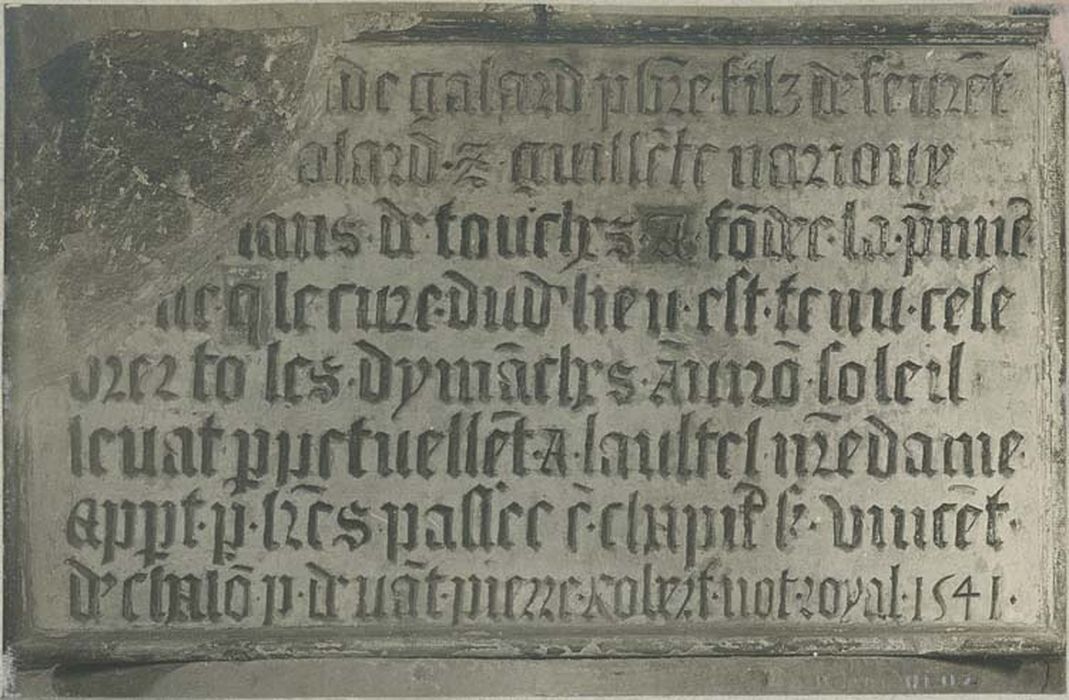 de galard pbr̃e filz de feu rẽt
alard · z · guillẽte narioux
ans · de touches · A · fõdee · la · p̃mie
q̃ le cure · dud' lieu · est · tenu · cele
brer to' les · dymãches · Auirõ · soleil
leuãt ppetuellẽt · A · laultel nr̃e dame
appt · p̃ · lr̃es passee ẽ · chapit̃ st · vincẽt ·
de chalõ · p · deuãt · pierre · Robert · not · royal · 1541 ·